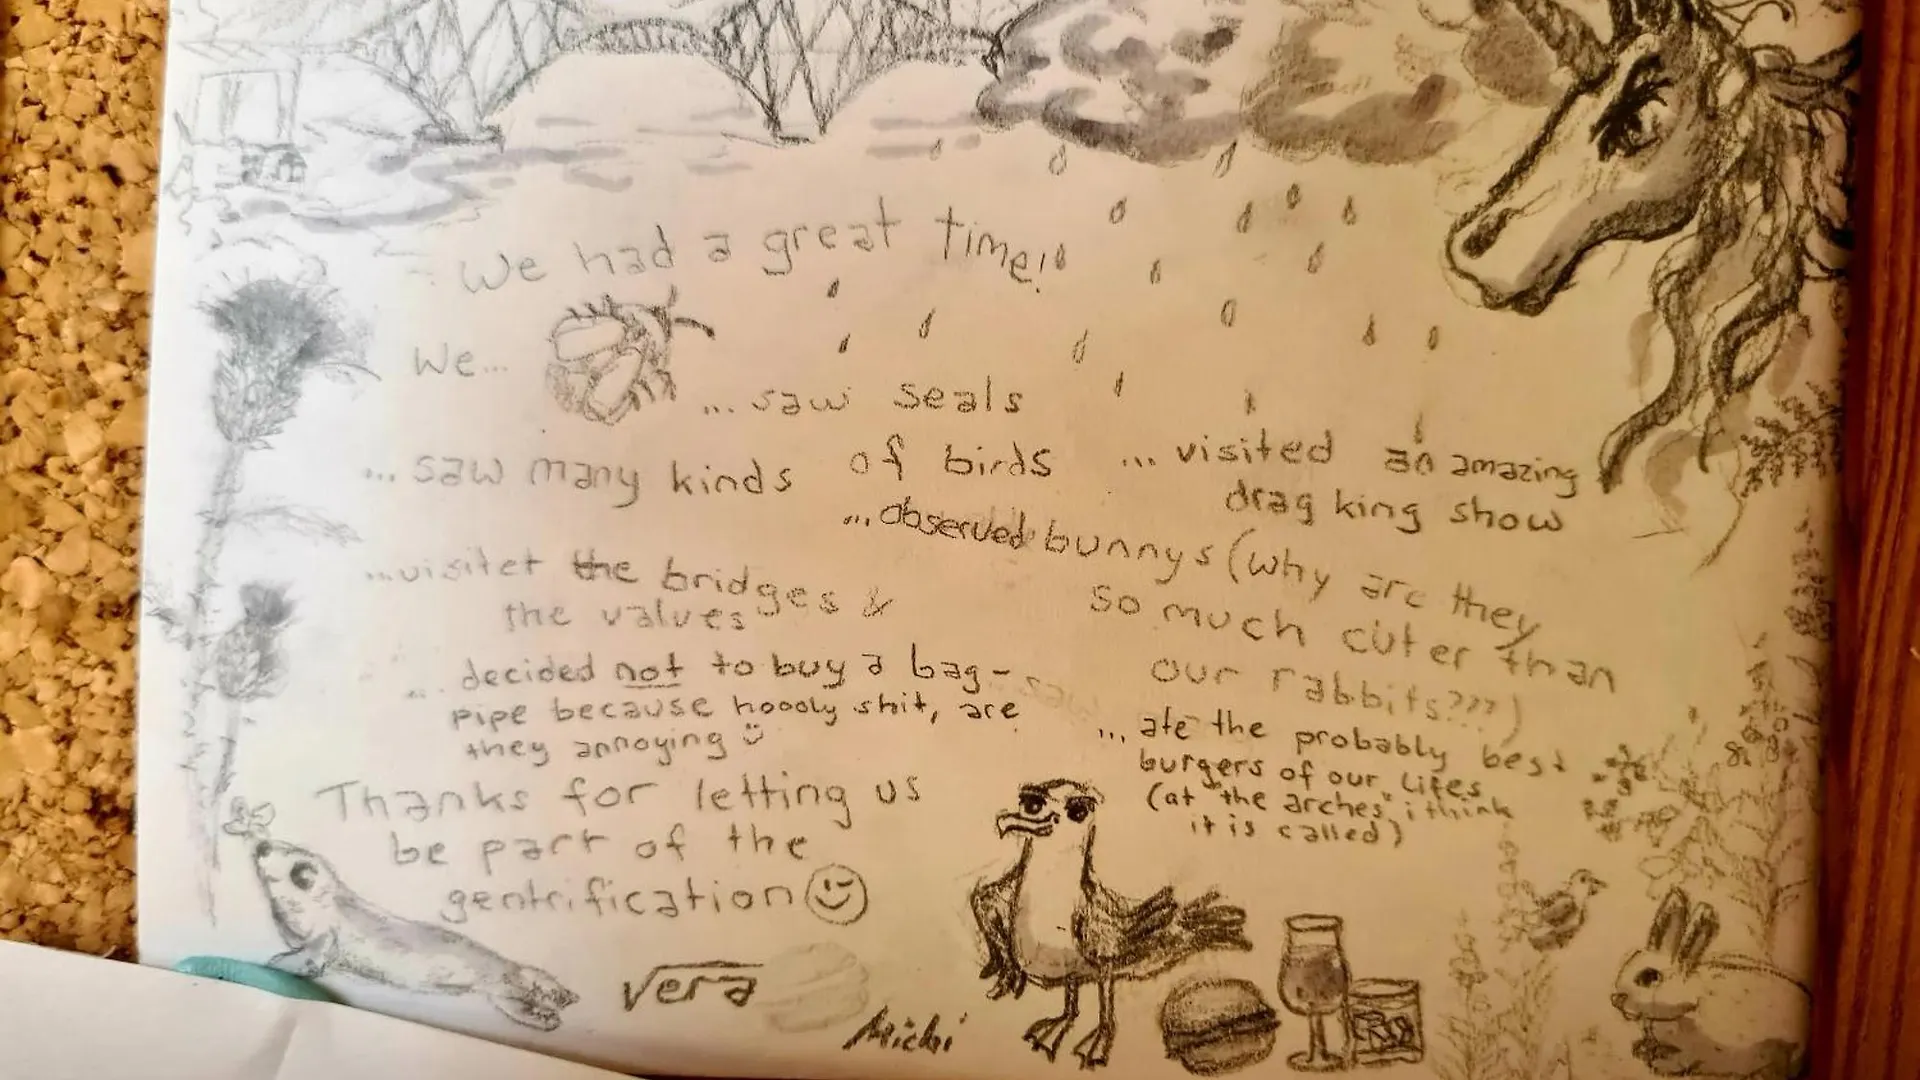 We had a great time!!
We...
...saw seals
...saw many kinds of birds
...visited an amazing
drag king show
...observed bunnys (why are they
so much cuter than
our rabbits???)
...visitet the bridges &
the valves
... decided not to buy a bag-
pipe because hoooly shit, are
they annoying
... ate the probably best
burgers of our lifes
(at "the arches" i think
it is called)
Thanks for letting us
be part of the
gentrification
Vera
Michi